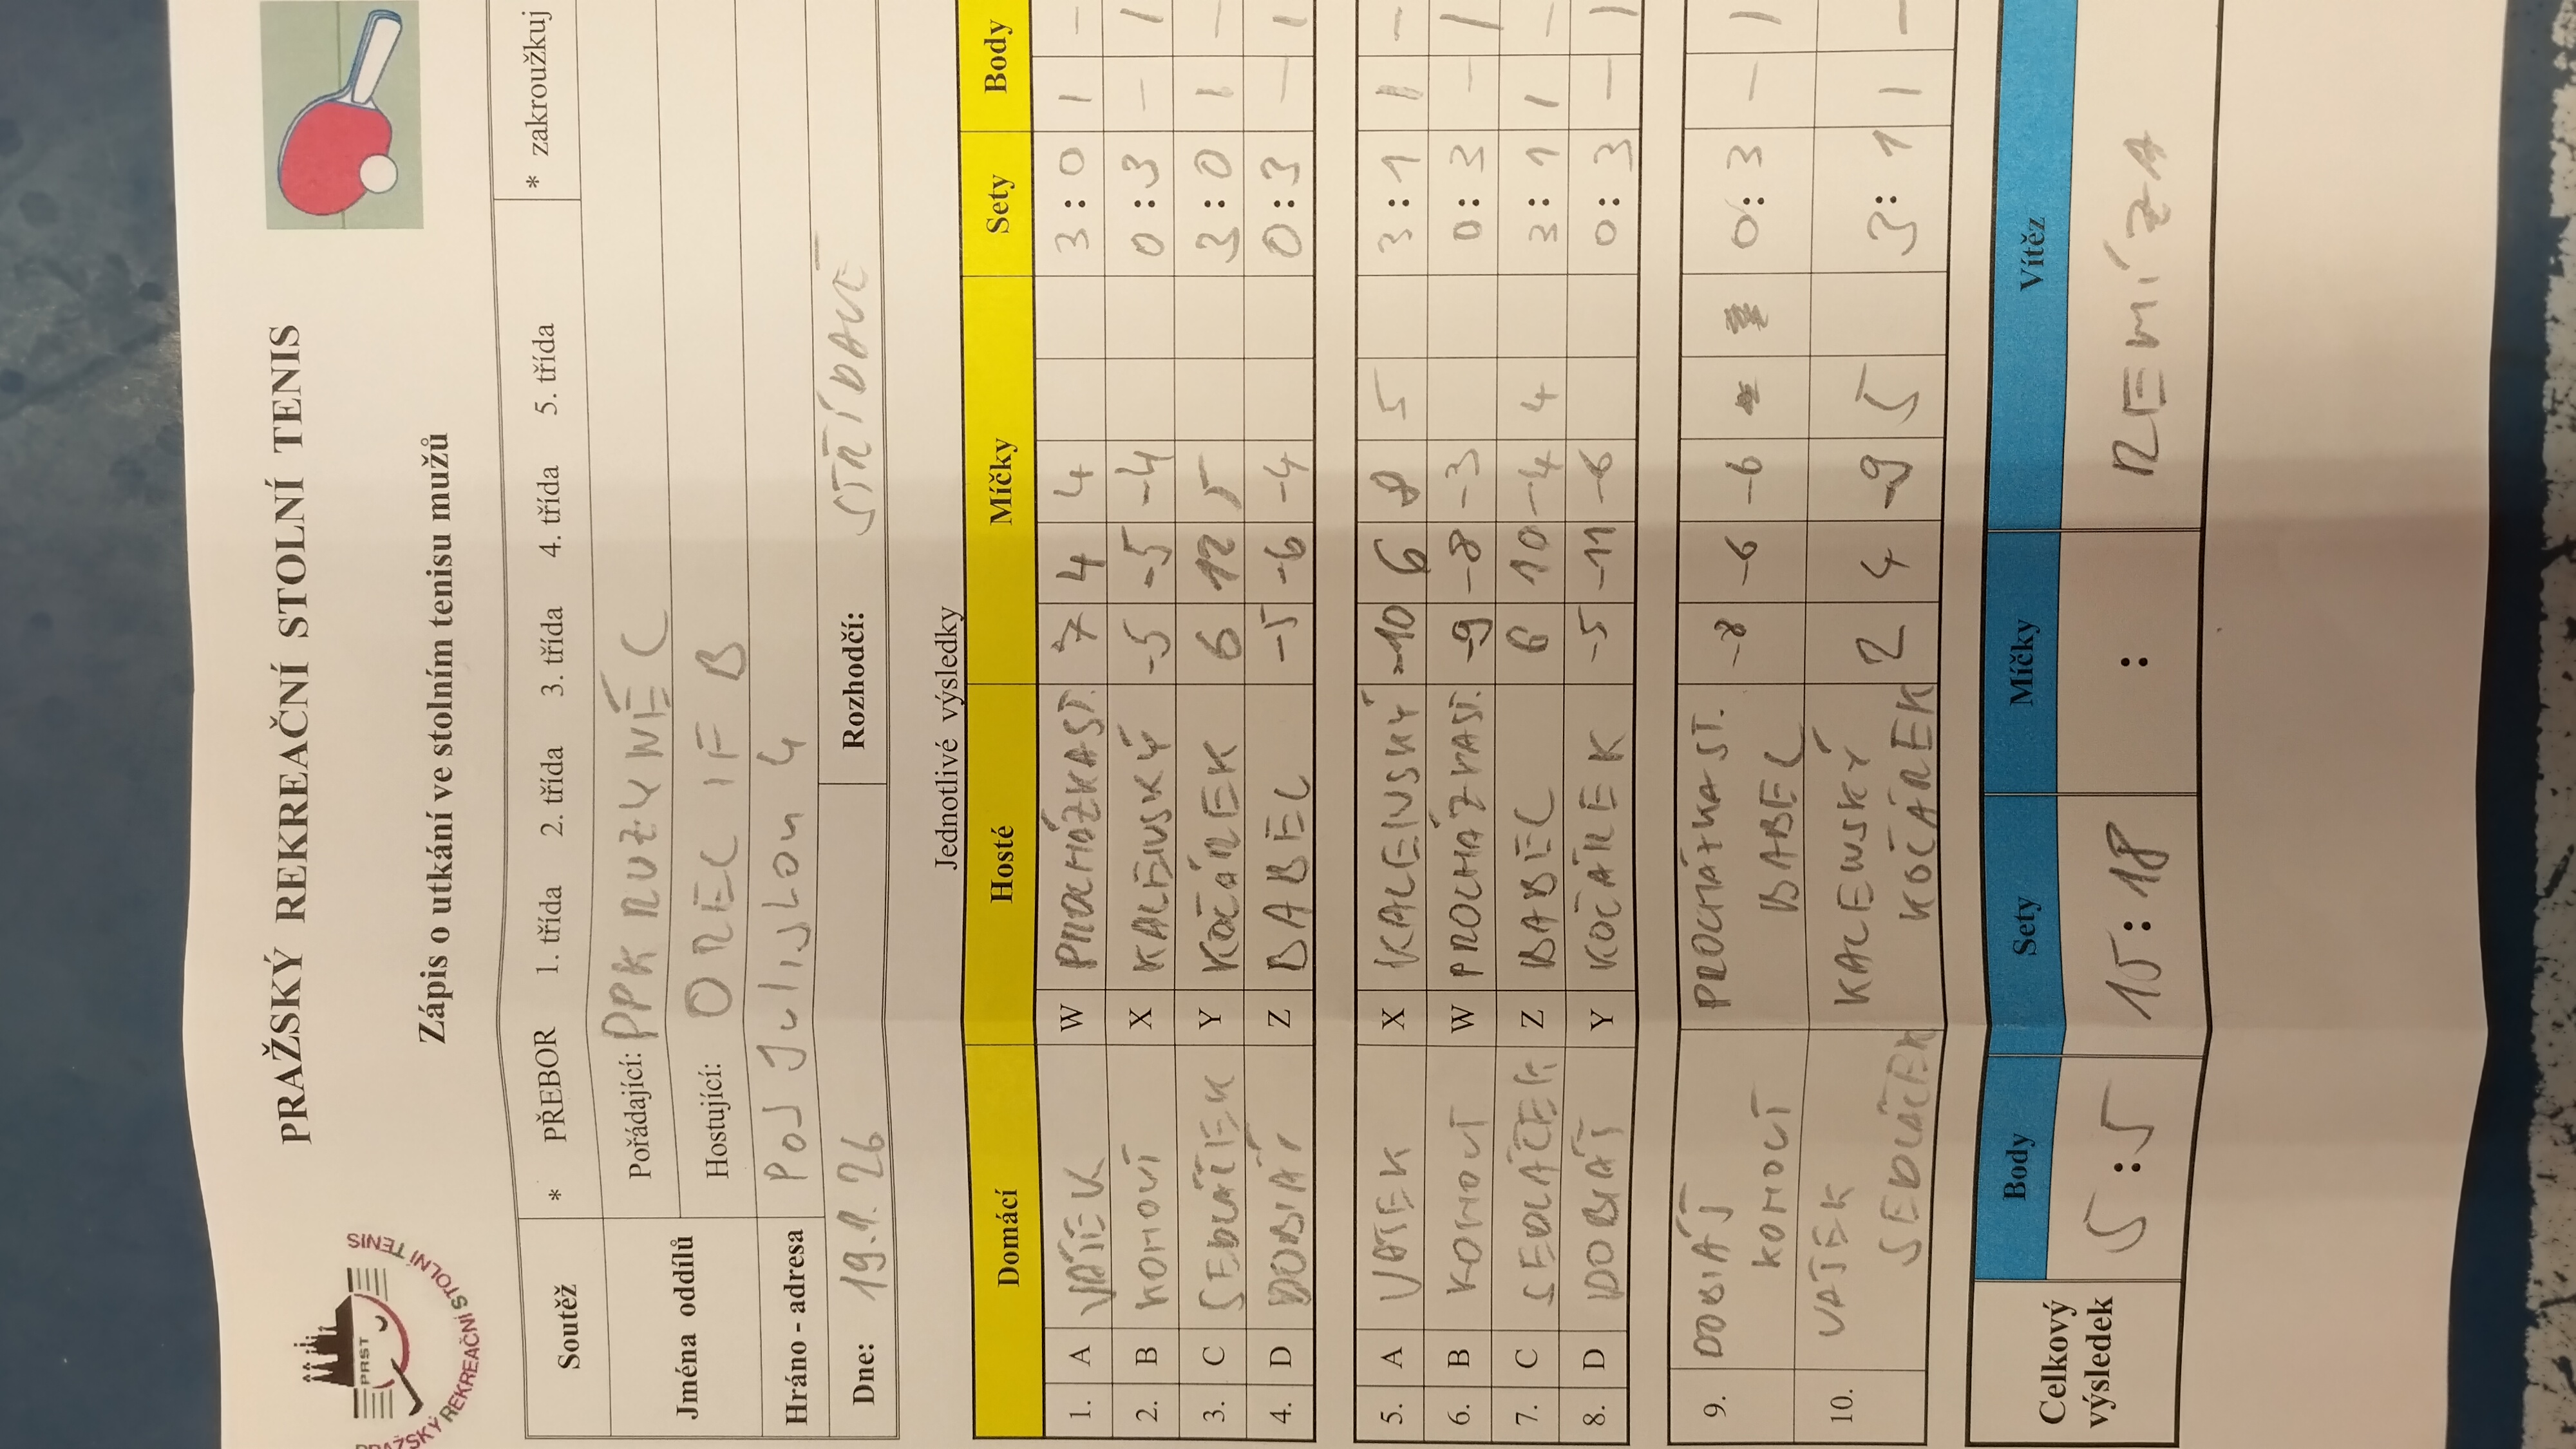 PRAŽSKÝ REKREAČNÍ STOLNÍ TENIS
PRST
PRAŽSKÝ REKREAČNÍ STOLNÍ TENIS
Zápis o utkání ve stolním tenisu mužů
Soutěž * PŘEBOR 1. třída 2. třída 3. třída 4. třída 5. třída * zakroužkuj
Jména oddílů Pořádající: PPK RUZYNĚ C
Hostující: OREL IF B
Hráno - adresa Pod Juliskou 4
Dne: 19.1.26 Rozhodčí: STŘÍDAVĚ
Jednotlivé výsledky
Domácí Hosté Míčky Sety Body
1. A VAŤEK W PROCHÁZKA ST. 7 4 4 3 : 0 1 –
2. B KOHOUT X KALENSKÝ -5 -5 -4 0 : 3 – 1
3. C SEDLÁČEK Y KOČÁREK 6 12 5 3 : 0 1 –
4. D DOBIÁŠ Z BABEC -5 -6 -4 0 : 3 – 1
5. A VAŤEK X KALENSKÝ -10 6 8 5 3 : 1 1 –
6. B KOHOUT W PROCHÁZKA ST. -9 -8 -3 0 : 3 – 1
7. C SEDLÁČEK Z BABEC 6 10 -4 4 3 : 1 1 –
8. D DOBIÁŠ Y KOČÁREK -5 -11 -6 0 : 3 – 1
9. DOBIÁŠ PROCHÁZKA ST. -8 -6 -6 0 : 3 – 1
KOHOUT BABEC
10. VAŤEK KALENSKÝ 2 4 -9 5 3 : 1 1 –
SEDLÁČEK KOČÁREK
Celkový výsledek Body Sety Míčky Vítěz
5 : 5 15 : 18 : REMÍZA